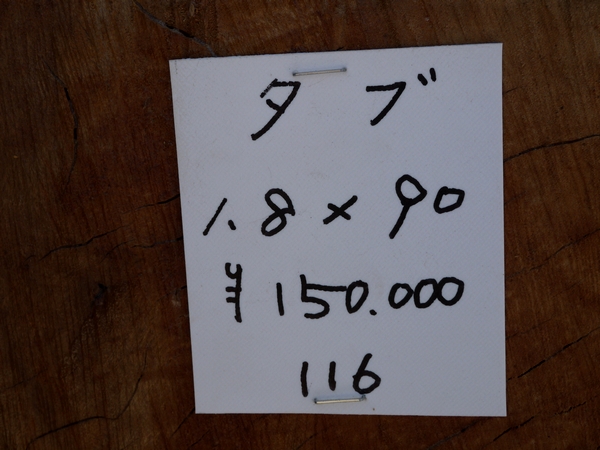 タブ
1.8×90
¥150.000
116